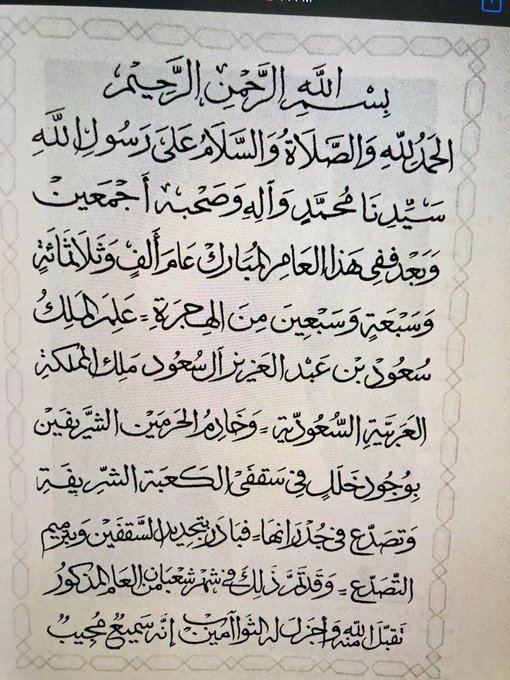 بِسْمِ اللَّهِ الرَّحْمٰنِ الرَّحِيمِ
الحَمْدُ لِلّهِ وَالصَّلَاةُ وَالسَّلَامُ عَلَىٰ رَسُولِ اللَّهِ
سَيِّدِنَا مُحَمَّدٍ وَآلِهِ وَصَحْبِهِ أَجْمَعِينَ
وَبَعْد فَفِي هَذَا العَامِ المُبَارَك عَام أَلْفٍ وَثَلَاثمَائَةٍ
وَسَبْعَةٍ وَسَبْعِين مِنَ الهِجرَةِ = عَلِمَ المَلِكُ
سُعُود بْن عَبْد العَزِيز آل سُعُود مَلِك المَملكَةِ
العَرَبِيَّةِ السُّعُودِيَّةِ = وَخَادِمُ الحَرَمَيْن الشَّرِيفَيْن
بِوُجُودِ خَلَلٍ فِي سَقْفَيْ الكَعبَة الشَّرِيفَةِ
وَتَصَدّع فِي جُدْرَانِهَا = فَبَادَرَ بتَجدِيد السَّقفَين وَبترمِيم
التَّصَدّع = وَقَد تَمَّ ذَلِكَ فِي شَهْرِ شَعبَان مِن العَام المَذكُور
تَقَبَّل اللهُ مِنْهُ وَأَجْزَلَ لَهُ الثَّوَاب آمِين إنَّهُ سَمِيعٌ مُجِيبٌ